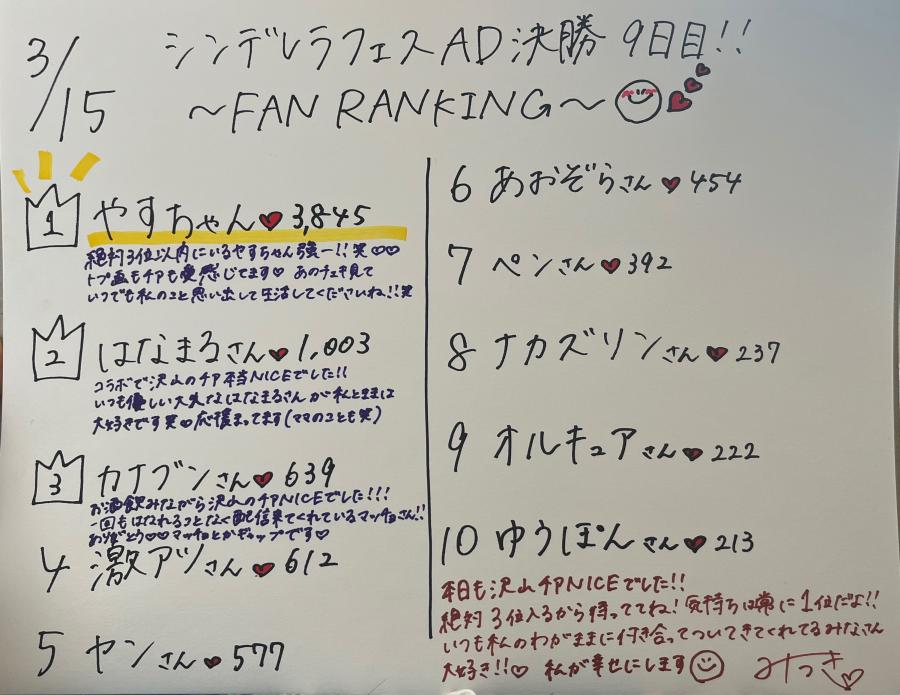 3/15
シンデレラフェスAD決勝 9日目!!
～FAN RANKING～
1 やすちゃん♥3,845
絶対3位以内にいるやすちゃん強ー!!笑♡♡
トプ画もチアも愛感じてます♡ あのチェキ見て
いつでも私のこと思い出して生活してくださいね!!笑
2 はなまるさん♥1,003
コラボで沢山のチア本当NICEでした!!
いつも優しい大人なはなまるさんが私とままは
大好きです笑♡応援まってます(ママのことも笑)
3 カナブンさん♥639
お酒飲みながら沢山のチアNICEでした!!!
一回もはなれることなく配信来てくれているマッチョさん!!
ありがとう♡♡マッチョとかギャップです♡
4 激アツさん♥612
5 ヤンさん♥577
6 あおぞらさん♥454
7 ペンさん♥392
8 ナカズリンさん♥237
9 オルキュアさん♥222
10 ゆうぽんさん♥213
本日も沢山チアNICEでした!!
絶対3位入るから待っててね!気持ちは常に1位だよ!!
いつも私のわがままに付き合ってついてきてくれてるみなさん
大好き!!♡ 私が幸せにします
みつき♡